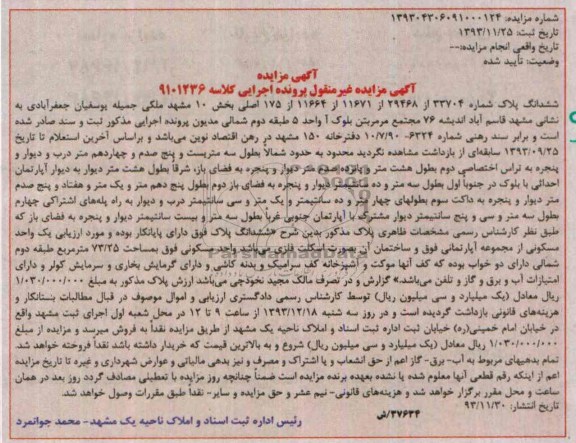 شماره مزایده: ۱۳۹۳۰۴۳۰۶۰۹۱۰۰۰۱۲۴
تاریخ ثبت: ۱۳۹۳/۱۱/۲۵
تاریخ واقعی انجام مزایده:--
وضعیت: تأیید شده
آگهی مزایده
آگهی مزایده غیرمنقول پرونده اجرایی کلاسه ۹۱۰۱۲۳۶
ششدانگ پلاک شماره ۳۳۷۰۴ از ۲۹۴۶۸ از ۱۱۶۷۱ از ۱۱۶۶۴ از ۱۷۵ اصلی بخش ۱۰ مشهد ملکی جمیله یوسفیان جعفرآبادی به
نشانی مشهد قاسم آباد اندیشه ۷۶ مجتمع مرمربتن بلوک آ واحد ۵ طبقه دوم شمالی مدیون پرونده اجرایی مذکور ثبت و سند صادر شده
است و برابر سند رهنی شماره ۶۳۲۴- ۱۰/۷/۹۰ دفترخانه ۱۵۰ مشهد در رهن اقتصاد نوین می‌باشد و براساس آخرین استعلام تا تاریخ
۱۳۹۳/۰۹/۲۵ سابقه‌ای از بازداشت مشاهده نگردید محدود به حدود شمالاً بطول سه متربیست و پنج صدم و چهاردهم متر درب و دیوار و
پنجره به تراس اختصاصی دوم بطول هشت متر و پانزده صدم متر دیوار و پنجره به فضای باز، شرقاً بطول هشت متر دیوار به دیوار آپارتمان
احداثی با بلوک در جنوباً اول بطول سه متر و ده سانتیمتر دیوار و پنجره به فضای باز دوم بطول پنج دهم متر و یک متر و هفتاد و پنج صدم
متر دیوار و پنجره به داکت سوم بطولهای چهار متر و ده سانتیمتر و یک متر و سی سانتیمتر درب و دیوار به راه پله‌های اشتراکی چهارم
بطول سه متر و سی و پنج سانتیمتر دیوار مشترک با آپارتمان جنوبی غرباً بطول سه متر و بیست سانتیمتر دیوار و پنجره به فضای باز که
طبق نظر کارشناس رسمی مشخصات ظاهری پلاک مذکور بدین شرح «ششدانگ پلاک فوق دارای پایانکار بوده و مورد ارزیابی یک واحد
مسکونی از مجموعه آپارتمانی فوق و ساختمان آن بصورت اسکلت فلزی می‌باشد واحد مسکونی فوق بمساحت ۷۳/۲۵ مترمربع طبقه دوم
شمالی دارای دو خواب بوده که کف آنها موکت و آشپزخانه کف سرامیک و بدنه کاشی و دارای گرمایش بخاری و سرمایش کولر و دارای
امتیازات آب و برق و گاز و تلفن می‌باشد.» گزارش و در تصرف مالک مجید نخودچی می‌باشد ارزش پلاک مذکور به مبلغ ۱/۰۳۰/۰۰۰/۰۰۰
ریال معادل (یک میلیارد و سی میلیون ریال) توسط کارشناس رسمی دادگستری ارزیابی و اموال موصوف در قبال مطالبات بستانکار و
هزینه‌های قانونی بازداشت گردیده است و در روز سه شنبه ۱۳۹۳/۱۲/۱۸ از ساعت ۹ تا ۱۲ در محل شعبه اول اجرای ثبت مشهد واقع
در خیابان امام خمینی(ره) خیابان ثبت اداره ثبت اسناد و املاک ناحیه یک مشهد از طریق مزایده نقداً به فروش میرسد و مزایده از مبلغ
۱/۰۳۰/۰۰۰/۰۰۰ ریال معادل (یک میلیارد و سی میلیون ریال) شروع و به بالاترین قیمت که خریدار داشته باشد نقداً فروخته خواهد شد.
تمام بدهیهای مربوط به آب- برق- گاز اعم از حق انشعاب و یا اشتراک و مصرف و نیز بدهی مالیاتی و عوارض شهرداری و غیره تا تاریخ مزایده
اعم از اینکه رقم قطعی آنها معلوم شده یا نشده بعهده برنده مزایده است ضمناً چنانچه روز مزایده با تعطیلی مصادف گردد روز بعد در همان
ساعت و محل مقرر برگزار خواهد شد و هزینه‌های قانونی- نیم عشر و حق مزایده و سایر- نقداً طبق مقررات وصول خواهد شد.
تاریخ انتشار: ۹۳/۱۱/۳۰
۳۷۶۳۴/ش
رئیس اداره ثبت اسناد و املاک ناحیه یک مشهد- محمد جوانمرد